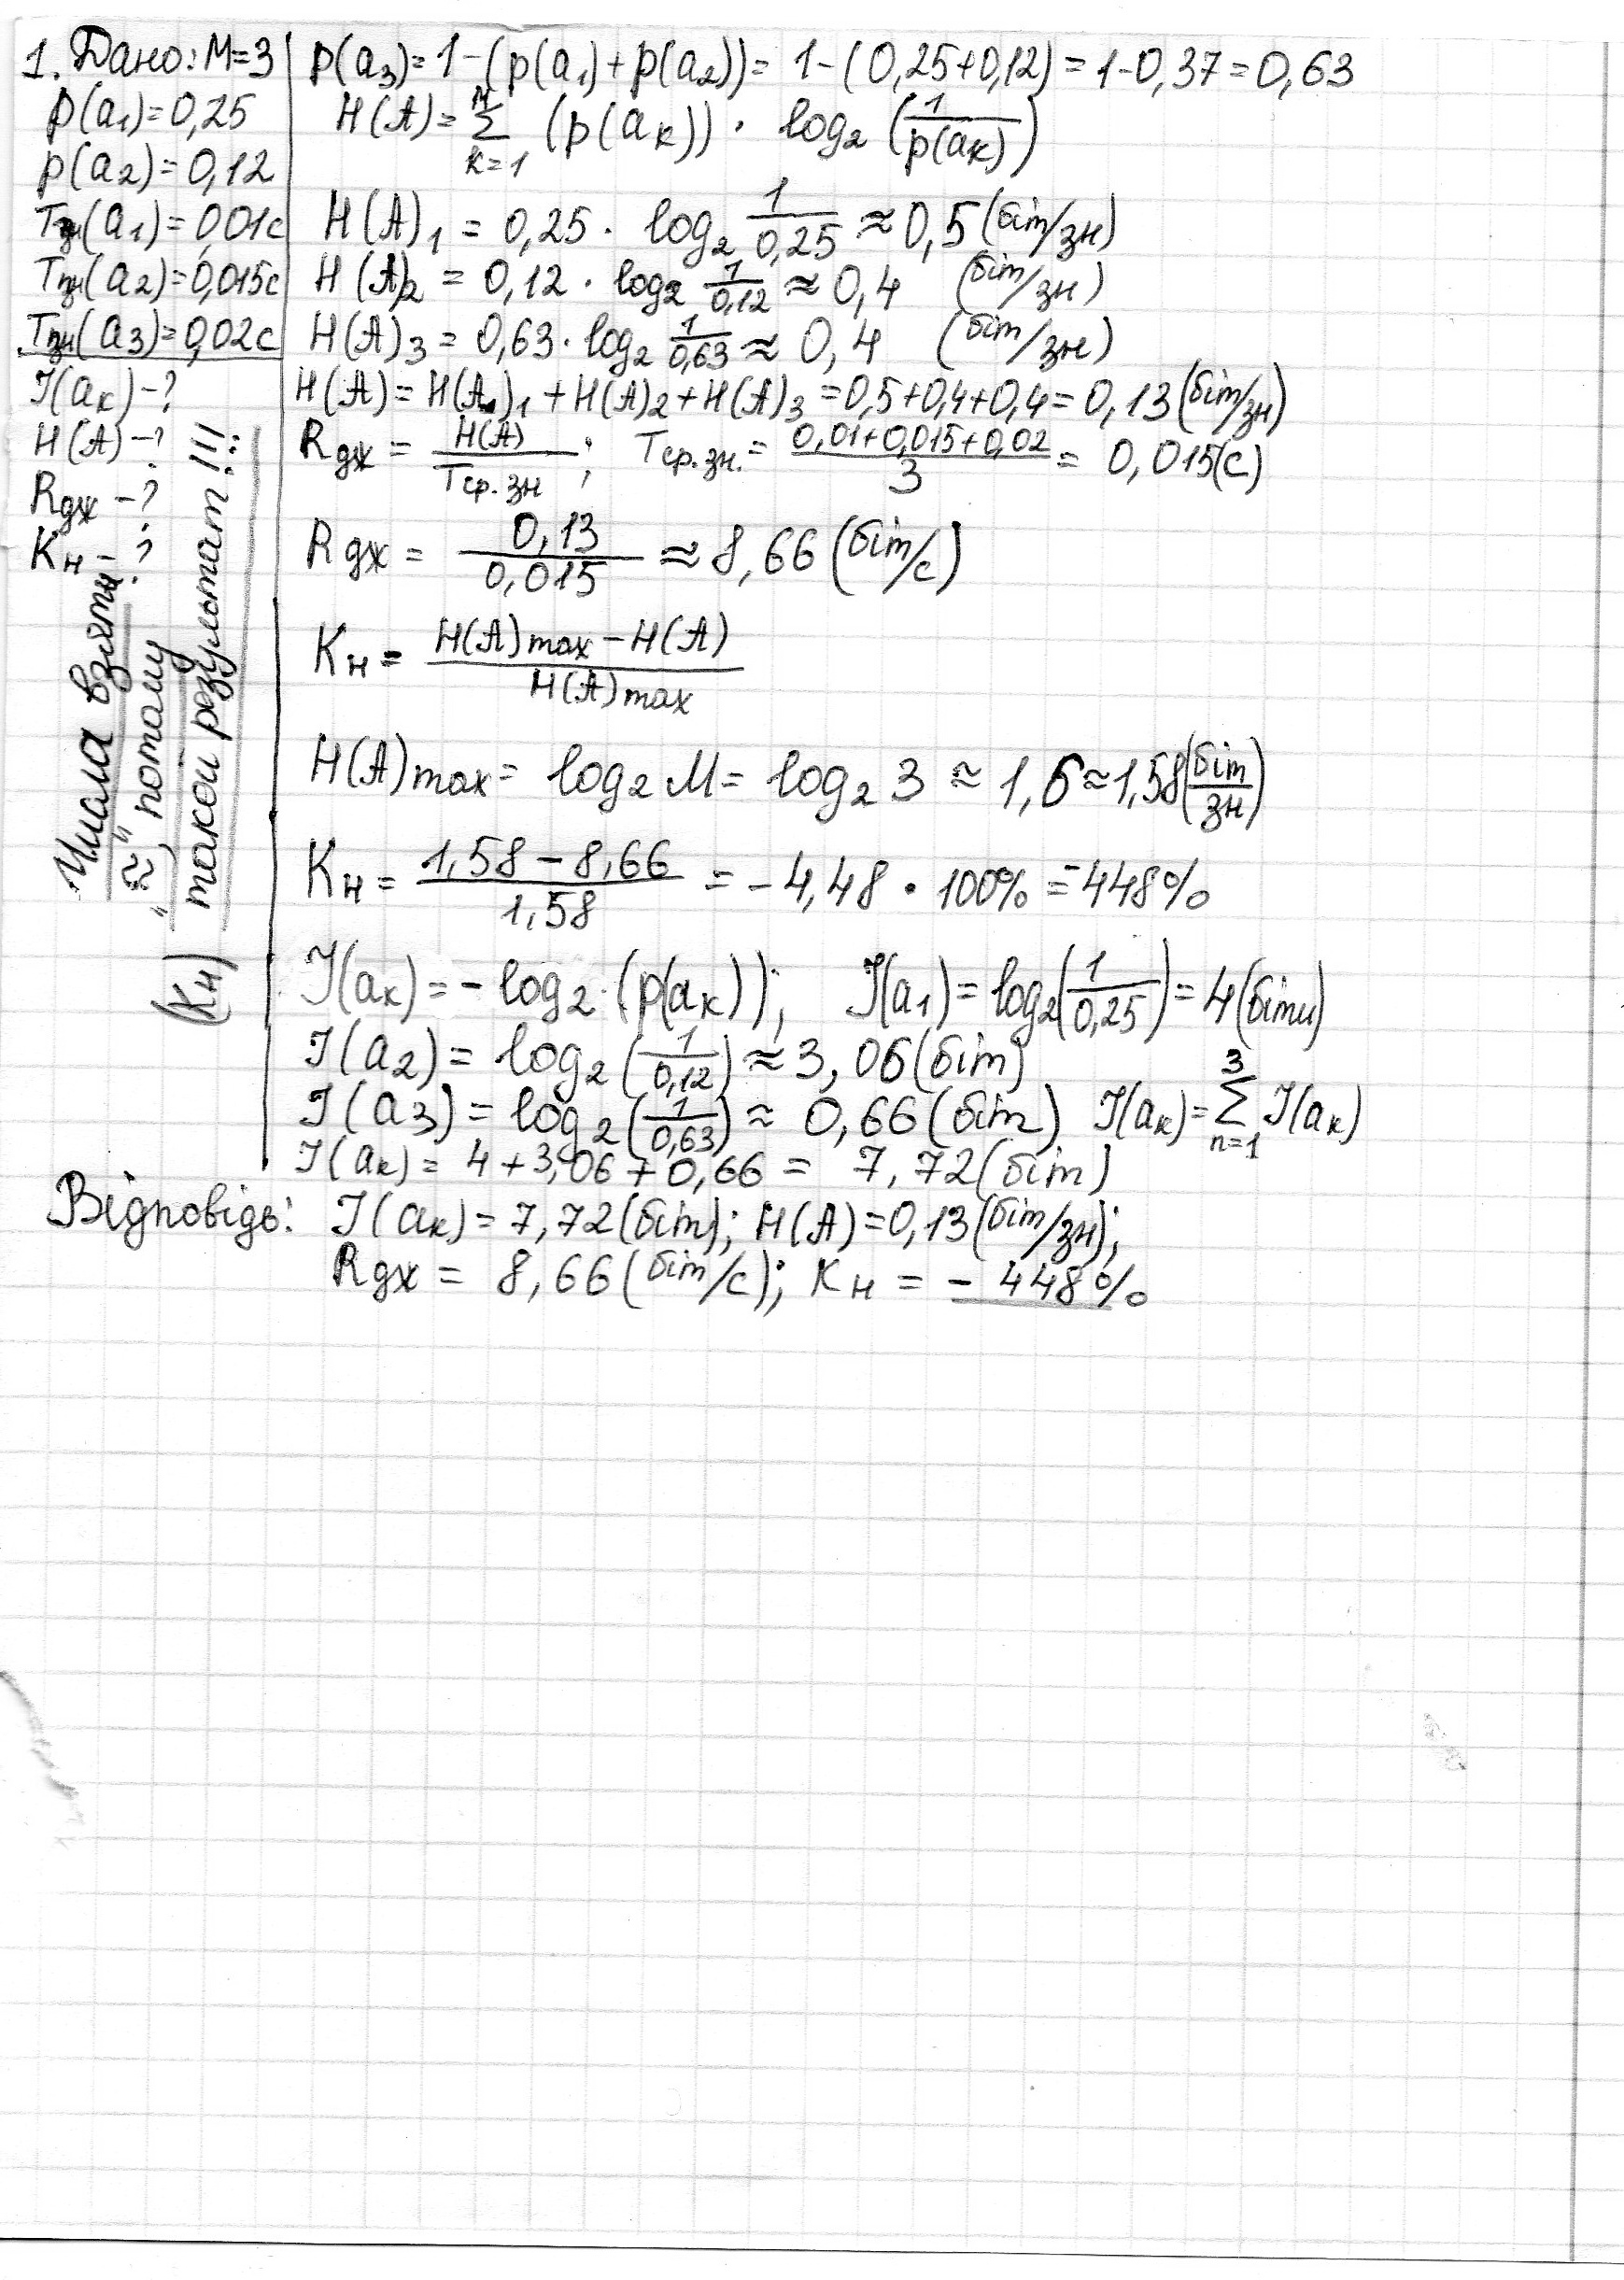 1. Дано: M=3
p(a₁)=0,25
p(a₂)=0,12
Tзн(a₁)=0,01c
Tзн(a₂)=0,015c
Tзн(a₃)=0,02c
I(aк)-?
H(A)-?
Rдж-?
Kн-?
Числа взяты
"≈", потому
такой результат!!!
(Kн)
p(a₃)=1-(p(a₁)+p(a₂))= 1-(0,25+0,12)=1-0,37=0,63
H(A)=∑ᴹₖ₌₁ (p(aₖ)) · log₂ (1/p(aₖ))
H(A)₁ = 0,25 · log₂ 1/0,25 ≈ 0,5 (біт/зн)
H(A)₂ = 0,12 · log₂ 1/0,12 ≈ 0,4 (біт/зн)
H(A)₃ = 0,63 · log₂ 1/0,63 ≈ 0,4 (біт/зн)
H(A)= H(A)₁ + H(A)₂ + H(A)₃ =0,5+0,4+0,4= 0,13 (біт/зн)
Rдж = H(A)/Tср.зн ; Tср.зн.= 0,01+0,015+0,02/3 = 0,015(c)
Rдж = 0,13/0,015 ≈ 8,66 (біт/c)
Kн = H(A)max - H(A)/H(A)max
H(A)max = log₂ M = log₂ 3 ≈ 1,6≈1,58(біт/зн)
Kн = 1,58 - 8,66/1,58 = -4,48 · 100% = -448%
I(aк) = - log₂·(p(aк)); I(a₁)= log₂(1/0,25)= 4(біти)
I(a₂) = log₂ (1/0,12) ≈ 3,06(біт)
I(a₃) = log₂ (1/0,63) ≈ 0,66 (біт) I(aк)= ∑³ₙ₌₁ I(aк)
I(aк)= 4 + 3,06 + 0,66 = 7,72(біт)
Відповідь: I(aк)=7,72(біт); H(A)=0,13(біт/зн);
Rдж = 8,66(біт/c); Kн = - 448%